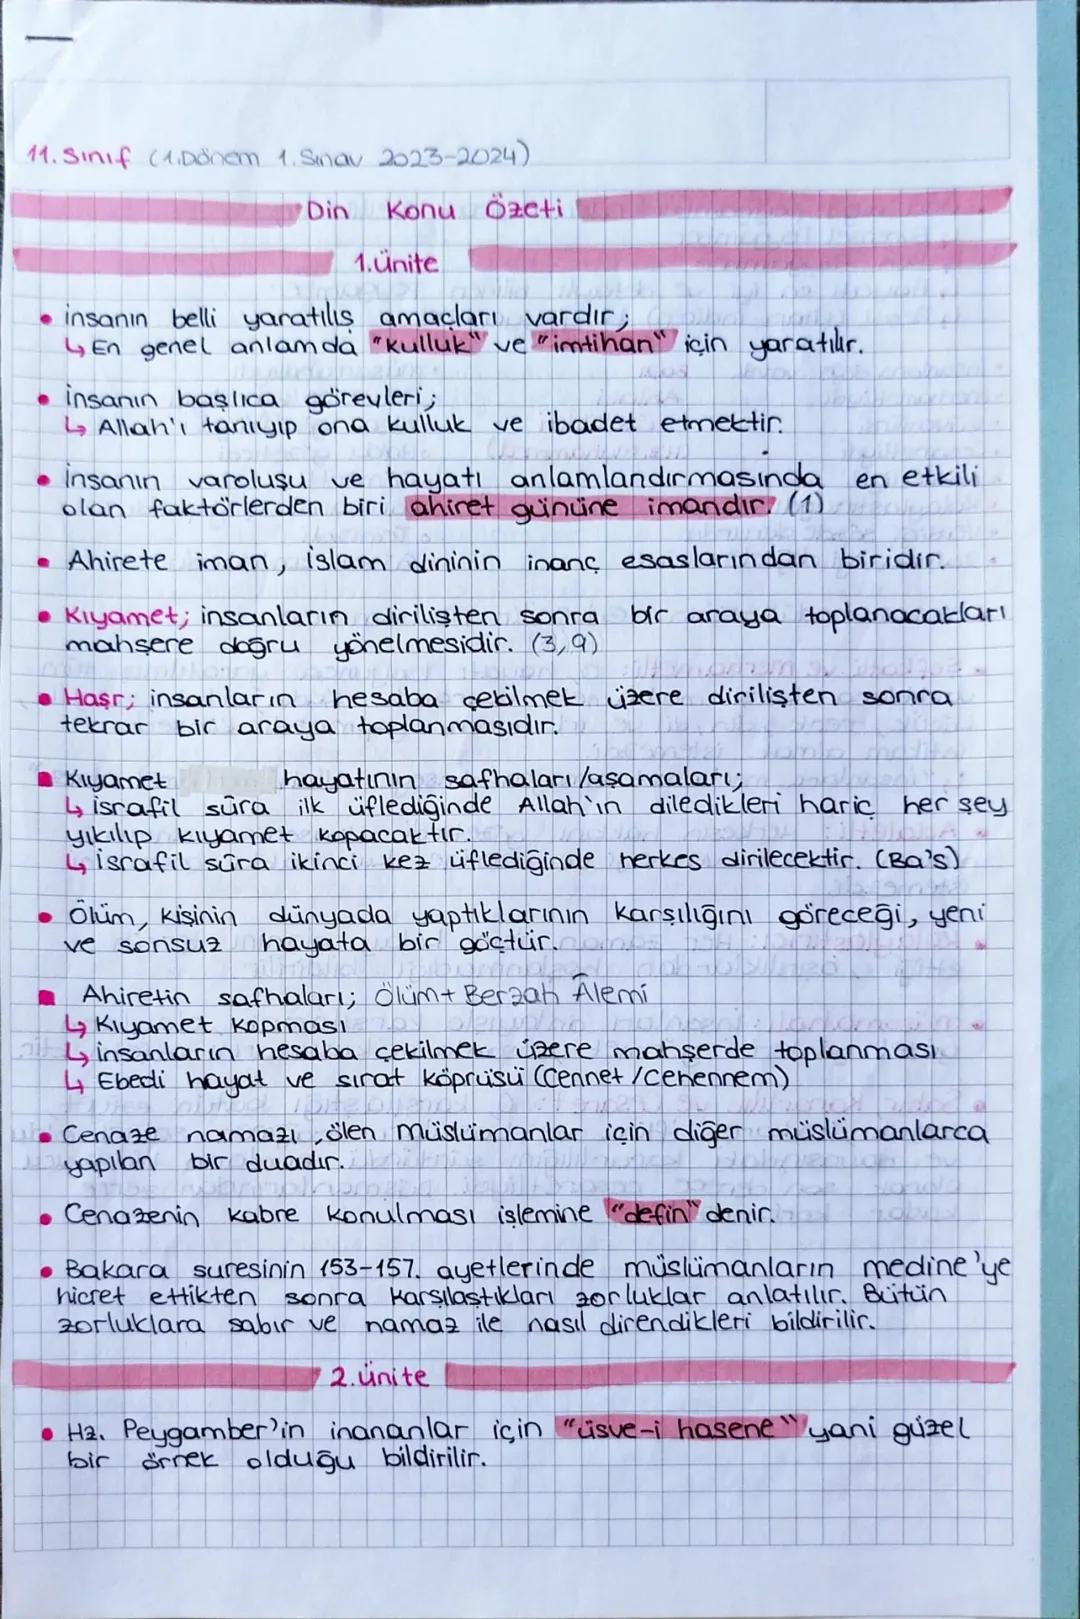 11. Sınıf (1.Dönem 1. Sınav 2023-2024)
Din Konu Özeti
1.Ünite
• İnsanın belli yaratılış amaçları vardır;
↳ En genel anlamda "kulluk" ve "imtihan" için yaratılır.
• İnsanın başlıca görevleri;
↳ Allah'ı tanıyıp ona kulluk ve ibadet etmektir.
• İnsanın varoluşu ve hayatı anlamlandırmasında en etkili
olan faktörlerden biri ahiret gününe imandır. (1)
• Ahirete iman, İslam dininin inanç esaslarından biridir.
• Kıyamet; insanların dirilişten sonra bir araya toplanacakları
mahşere doğru yönelmesidir. (3,9)
• Haşr; insanların hesaba çekilmek üzere dirilişten sonra
tekrar bir araya toplanmasıdır.
■ Kıyamet hayatının safhaları/aşamaları;
↳ İsrafil sûra ilk üflediğinde Allah'ın diledikleri hariç her şey
yıkılıp kıyamet kopacaktır.
↳ İsrafil sûra ikinci kez üflediğinde herkes dirilecektir. (Ba's)
• Ölüm, kişinin dünyada yaptıklarının karşılığını göreceği, yeni
ve sonsuz hayata bir göçtür.
■ Ahiretin safhaları; Ölüm + Berzah Âlemi
↳ Kıyamet kopması
↳ insanların hesaba çekilmek üzere mahşerde toplanması
↳ Ebedi hayat ve sırat köprüsü (Cennet/Cehennem)
• Cenaze namazı, ölen müslümanlar için diğer müslümanlarca
yapılan bir duadır.
• Cenazenin kabre konulması işlemine "defin" denir.
• Bakara suresinin 153-157. ayetlerinde müslümanların medine'ye
hicret ettikten sonra karşılaştıkları zorluklar anlatılır. Bütün
zorluklara sabır ve namaz ile nasıl direndikleri bildirilir.
2.Ünite
• Hz. Peygamber'in inananlar için "üsve-i hasene" yani güzel
bir örnek olduğu bildirilir.